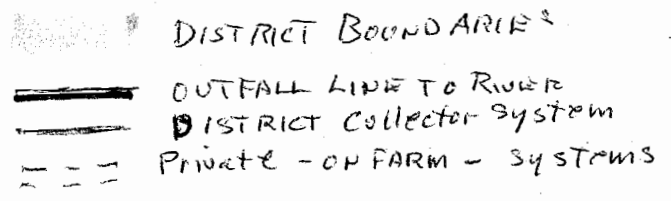 DISTRICT BOUNDARIES
OUTFALL LINE TO RIVER
DISTRICT Collector System
Private - ON FARM - Systems